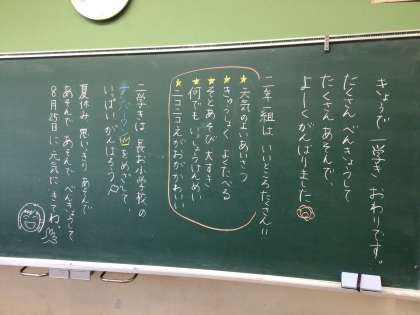 きょうで 一学き おわりです。
たくさん べんきょうして
たくさん あそんで、
よーくがんばりました
二年一組は いいところたくさん!!
★元気のよいあいさつ
★きゅうしょく よくたべる
★そとあそび 大すき
★何でも いっしょうけんめい
★ニコニコえがおがかわいい
二学きは 長お小学校の
ナンバーワンをめざして、
いっぱい がんばろう
夏休み 思いっきり あそんで
あそんで あそんで べんきょうして
8月25日に 元気に きてね。